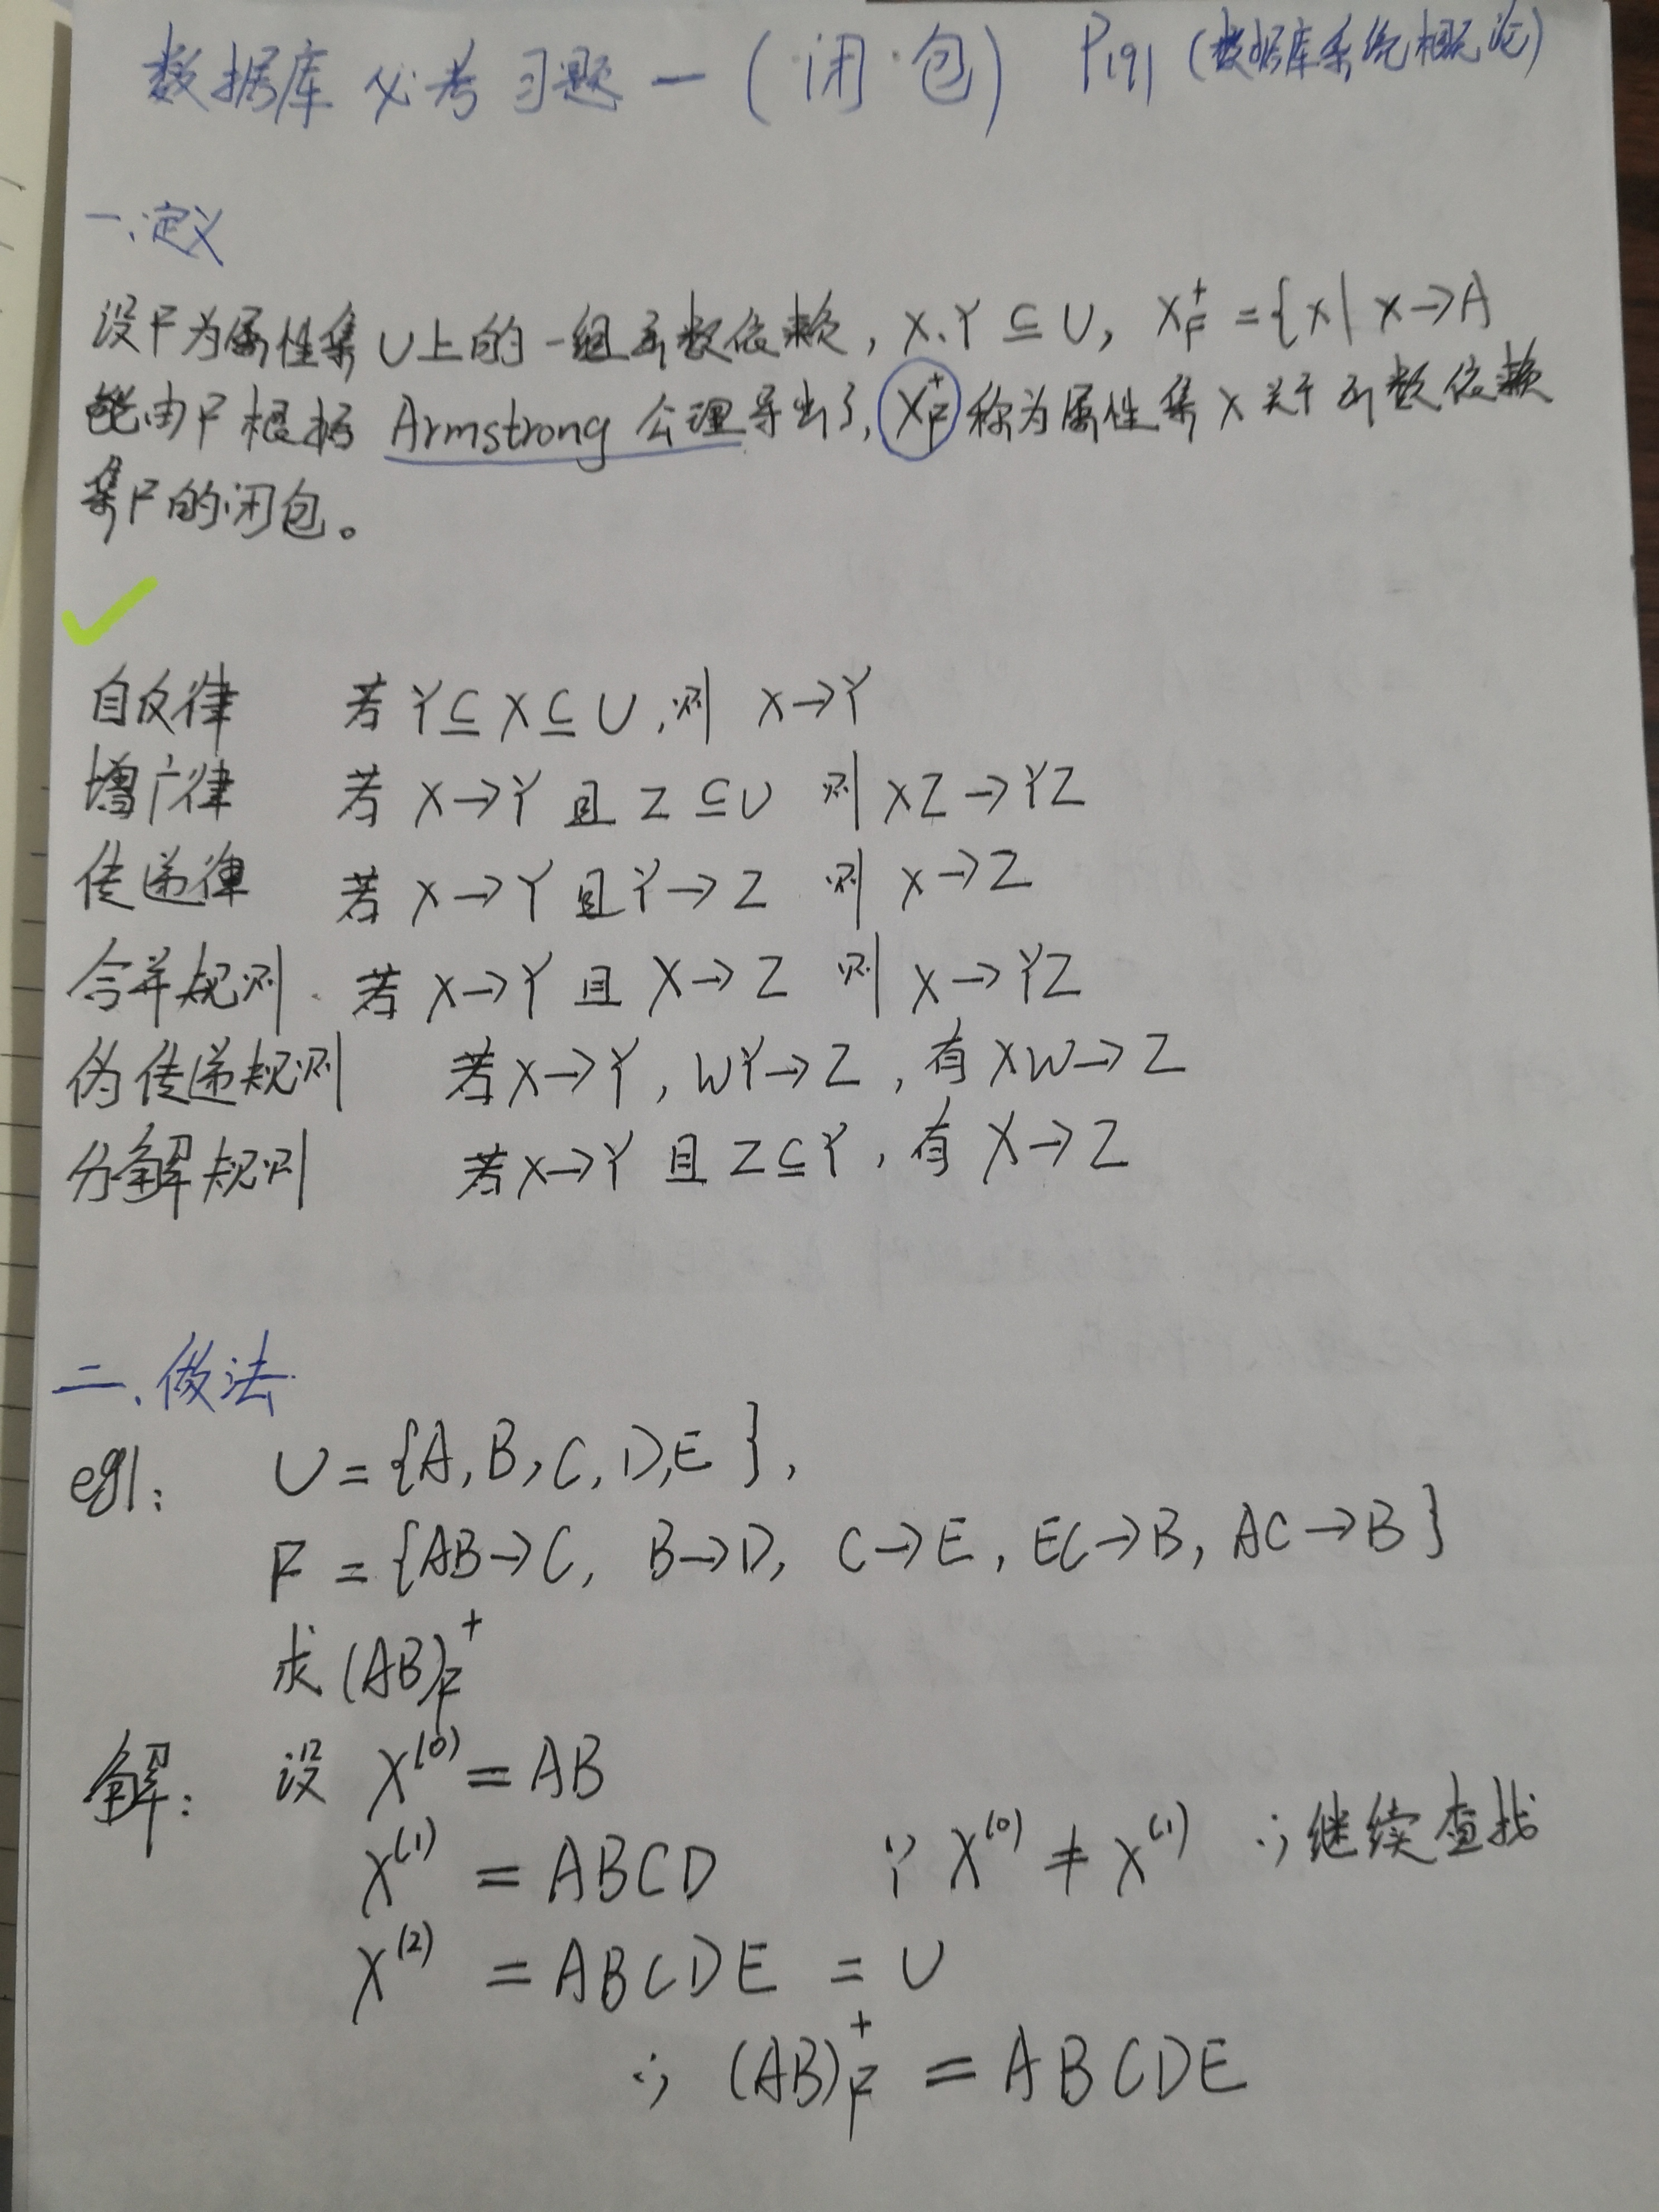 数据库必考习题一(闭包) P191(数据库系统概论)
一、定义
设F为属性集U上的一组函数依赖,X、Y⊆U, X_F^+={x|x→A
能由F根据Armstrong公理导出},X_F^+称为属性集X关于函数依赖
集F的闭包。
自反律 若Y⊆X⊆U,则 X→Y
增广律 若X→Y且Z⊆U 则XZ→YZ
传递律 若X→Y且Y→Z 则X→Z
合并规则 若X→Y且X→Z 则X→YZ
伪传递规则 若X→Y,WY→Z,有XW→Z
分解规则 若X→Y且Z⊆Y,有X→Z
二、做法
eg1: U={A,B,C,D,E},
F={AB→C, B→D, C→E, EC→B, AC→B}
求(AB)_F^+
解: 设 X^(0)=AB
X^(1)=ABCD ∵X^(0)≠X^(1) ∴继续查找
X^(2)=ABCDE=U
∴ (AB)_F^+=ABCDE